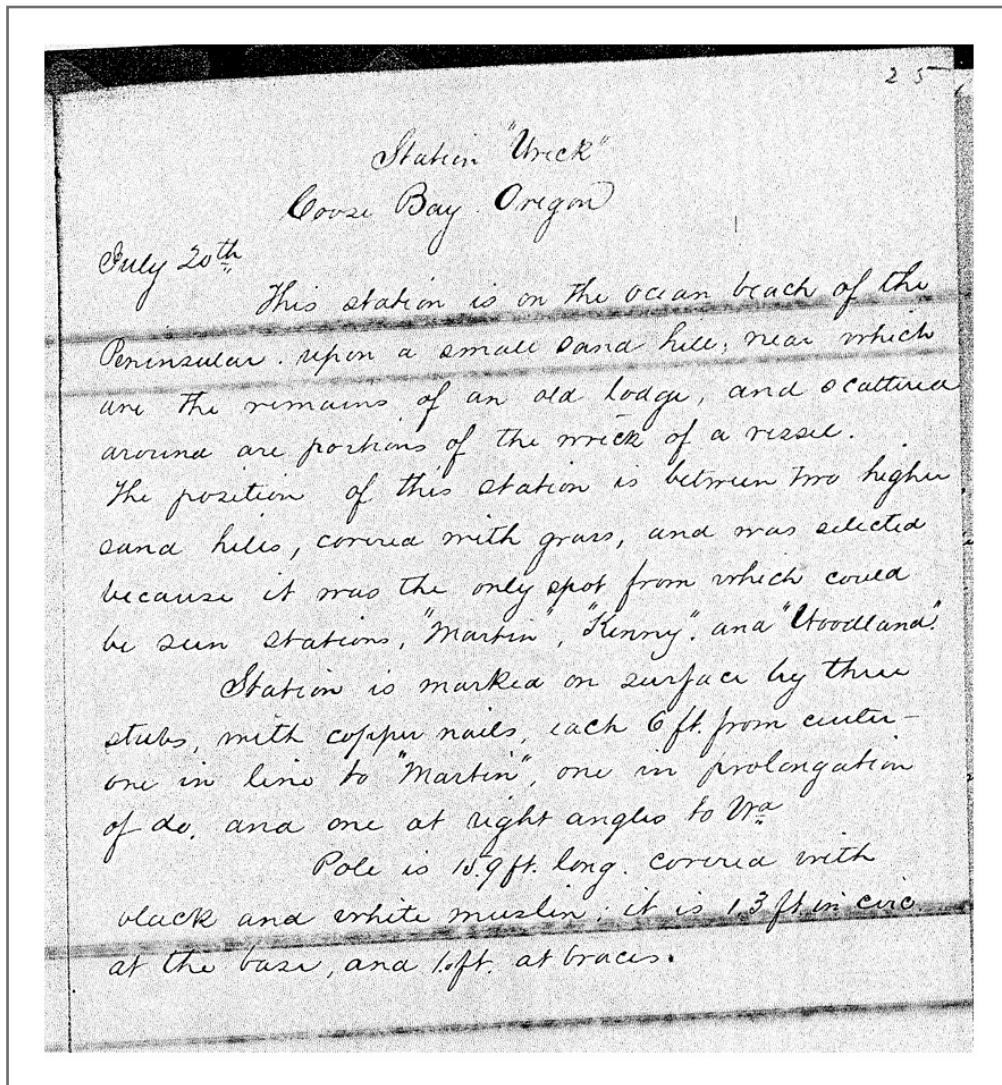 25
Station "Wreck"
Coose Bay Oregon
July 20th
This station is on the ocean beach of the
Peninsular. upon a small sand hill; near which
are the remains of an old lodge, and scattered
around are portions of the wreck of a vessel.
The position of this station is between two higher
sand hills, covered with grass, and was selected
because it was the only spot from which could
be seen stations, "Martin", "Kenny". and "Woodland".
Station is marked on surface by three
stubs, with copper nails, each 6 ft. from center -
one in line to "Martin", one in prolongation
of do. and one at right angles to
Pole is 15.9 ft. long. covered with
black and white muslin; it is 1.3 ft in circ.
at the base, and 1. ft. at braces.